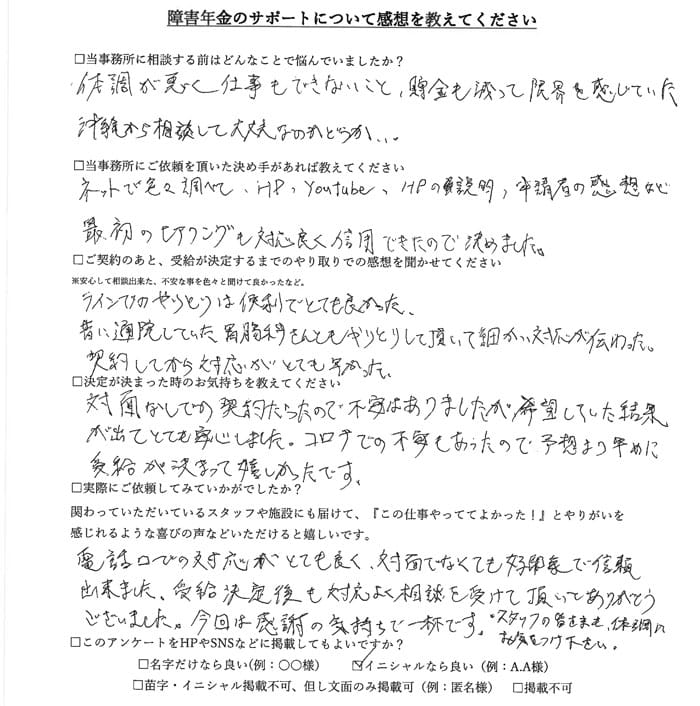 障害年金のサポートについて感想を教えてください
□当事務所に相談する前はどんなことで悩んでいましたか？
体調が悪く仕事もできないこと、貯金も減って限界を感じていた
沖縄から相談して大丈夫なのかどうか...
□当事務所にご依頼を頂いた決め手があれば教えてください
ネットで色々調べて、HP、Youtube、HPの解説的、申請者の感想など
最初のヒアリングも対応良く信用できたので決めました。
□ご契約のあと、受給が決定するまでのやり取りでの感想を聞かせてください
※安心して相談出来た、不安な事を色々と聞けて良かったなど。
ラインでのやりとりは便利でとても良かった、
昔に通院していた胃腸科さんともやりとりして頂いて細かい対応が伝わった。
契約してから対応がとても早かった。
□決定が決まった時のお気持ちを教えてください
対面なしでの契約だったので不安はありましたが希望していた結果
が出てとても安心しました。コロナでの不安もあったので予想より早めに
受給が決まって嬉しかったです。
□実際にご依頼してみていかがでしたか？
関わっていただいているスタッフや施設にも届けて、『この仕事やっててよかった！』とやりがいを
感じれるような喜びの声などいただけると嬉しいです。
電話口での対応がとても良く、対面でなくても好印象で信頼
出来ました、受給決定後も対応よく相談を受けて頂いてありがとう
ございました。今回は感謝の気持ちで一杯です。・スタッフの皆さまも、体調に
お気をつけ下さい。
□このアンケートをHPやSNSなどに掲載してもよいですか？
□名字だけなら良い（例：〇〇様）　☑イニシャルなら良い（例：A.A様）
□苗字・イニシャル掲載不可、但し文面のみ掲載可（例：匿名様）　□掲載不可